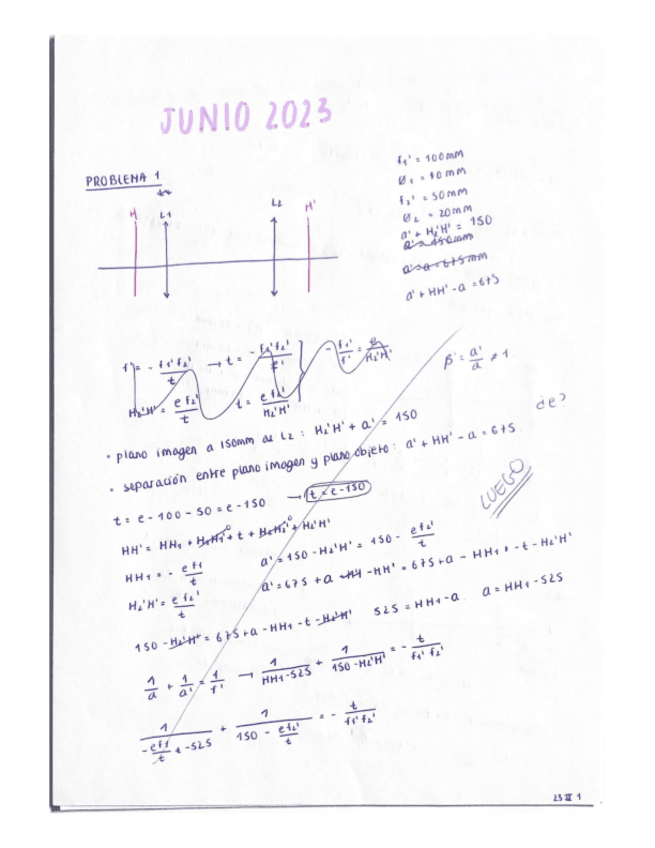 JUNIO 2023
PROBLEMA 1
H L1 L2 H'
f1' = 100mm
Ø1 = 10mm
f2' = 50mm
Ø2 = 20mm
a' + H2'H' = 150
a' = 150mm
a' - a = 675mm
a' + HH' - a = 675
f' = - f1' f2' / t → t = - f1' f2' / f'
- f1' / f' = e / H2'H'
β' = a' / a ≠ 1
H2'H' = e f2' / t t = e f2' / H2'H'
de?
• plano imagen a 150mm de L2 : H2'H' + a' = 150
• separación entre plano imagen y plano objeto: a' + HH' - a = 675
LUEGO
t = e - 100 - 50 = e - 150 → t = e - 150
HH' = HH1 + H1H1' + t + H2H2' + H2'H'
HH1 = - e f1 / t a' = 150 - H2'H' = 150 - e f2' / t
H2'H' = e f2' / t a' = 675 + a - HH' = 675 + a - HH1 - t - H2'H'
150 - H2'H' = 675 + a - HH1 - t - H2'H' 525 = HH1 - a a = HH1 - 525
1/a + 1/a' = 1/f' → 1 / HH1 - 525 + 1 / 150 - H2'H' = - t / f1' f2'
1 / - e f1 / t t - 525 + 1 / 150 - e f2' / t = - t / f1' f2'
23 II 1